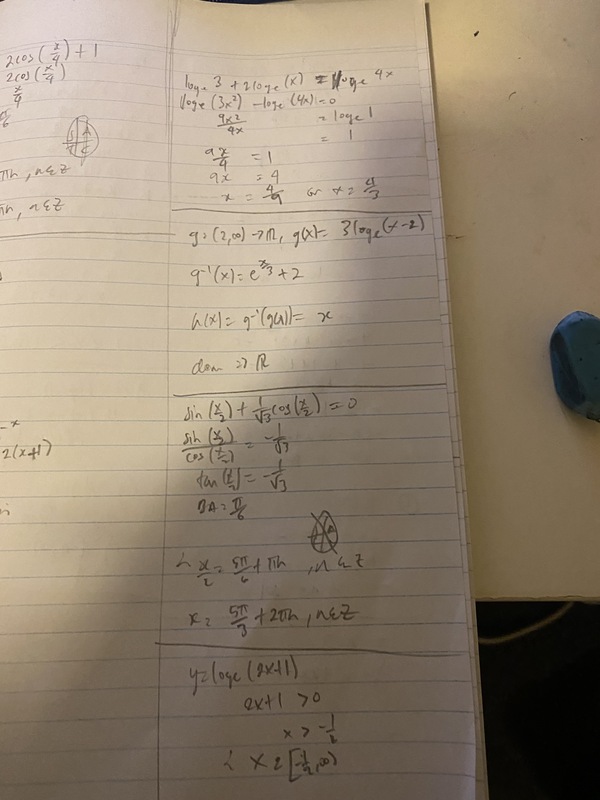 2cos(x/4) + 1
2cos(x/4)
x/4
πn, n∈Z
πn, n∈Z
2(x+1)
loge 3 + 2loge(x) = loge 4x
loge(3x²) - loge(4x) = 0
9x2/4x = loge 1
= 1
9x/4 = 1
9x = 4
x = 4/9 or x = 4/3
g: (2,∞) → R, g(x) = 3loge(x-2)
g⁻¹(x) = e^(x/3) + 2
h(x) = g⁻¹(g(x)) = x
dom => R
sin(x/2) + 1/√3 cos(x/2) = 0
sin(x/2)/cos(x/2) = -1/√3
tan(x/2) = -1/√3
BA = π/6
∴ x/2 = 5π/6 + πn, n∈Z
x = 5π/3 + 2πn, n∈Z
y = loge(2x+1)
2x+1 > 0
x > -1/2
∴ x ∈ [-1/2, ∞)